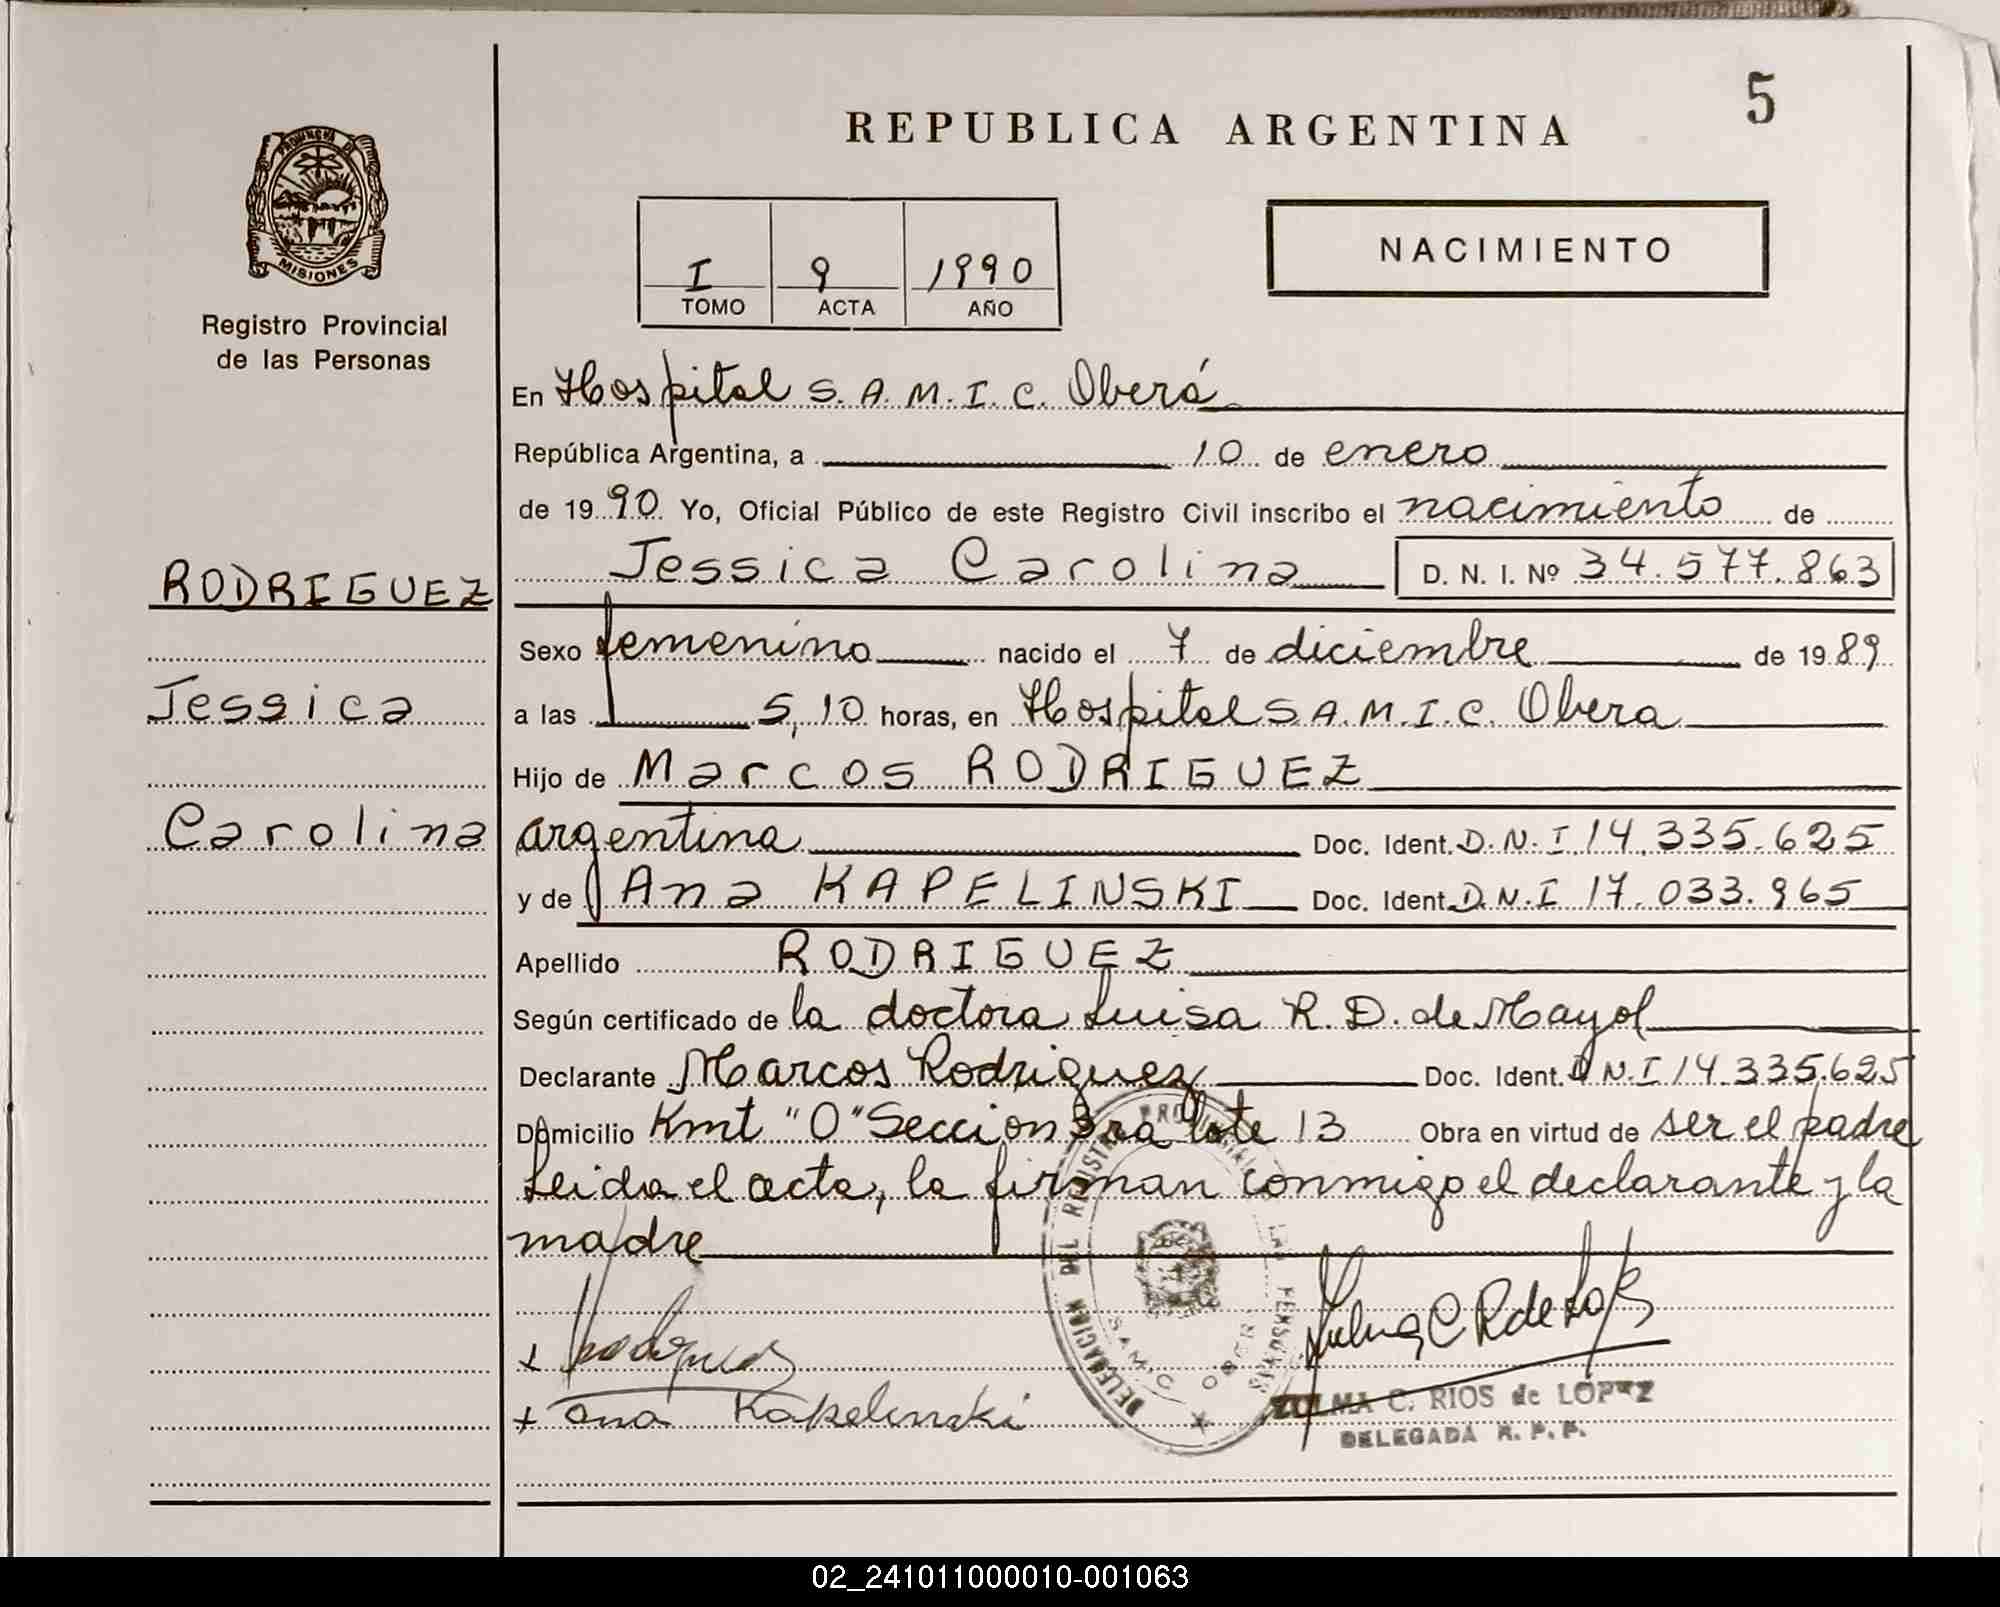 5
REPUBLICA ARGENTINA
PROVINCIA DE
MISIONES
Registro Provincial
de las Personas
I 9 1990
TOMO ACTA AÑO
NACIMIENTO
En Hospital S.A.M.I.C. Oberá
República Argentina, a 10 de enero
de 1990 Yo, Oficial Público de este Registro Civil inscribo el nacimiento de
Jessica Carolina D. N. I. Nº 34.577.863
RODRIGUEZ
Jessica
Carolina
Sexo femenino nacido el 7 de diciembre de 1989
a las 5,10 horas, en Hospital S.A.M.I.C. Obera
Hijo de Marcos RODRIGUEZ
argentina Doc. Ident. D.N.I 14.335.625
y de Ana KAPELINSKI Doc. Ident. D.N.I 17.033.965
Apellido RODRIGUEZ
Según certificado de la doctora Luisa R. D. de Mayol
Declarante Marcos Rodriguez Doc. Ident. D.N.I 14.335.625
Domicilio Kmt "0" Seccion 3ra lote 13 Obra en virtud de ser el padre
Leida el acta, la firman conmigo el declarante y la
madre
DELEGACION DEL REGISTRO PROVINCIAL DE LAS PERSONAS
SAMIC OBERA
+ Rodriguez
+ Ana Kapelinski
ZULMA C. RIOS de LÓPEZ
DELEGADA R. P. P.
02_241011000010-001063